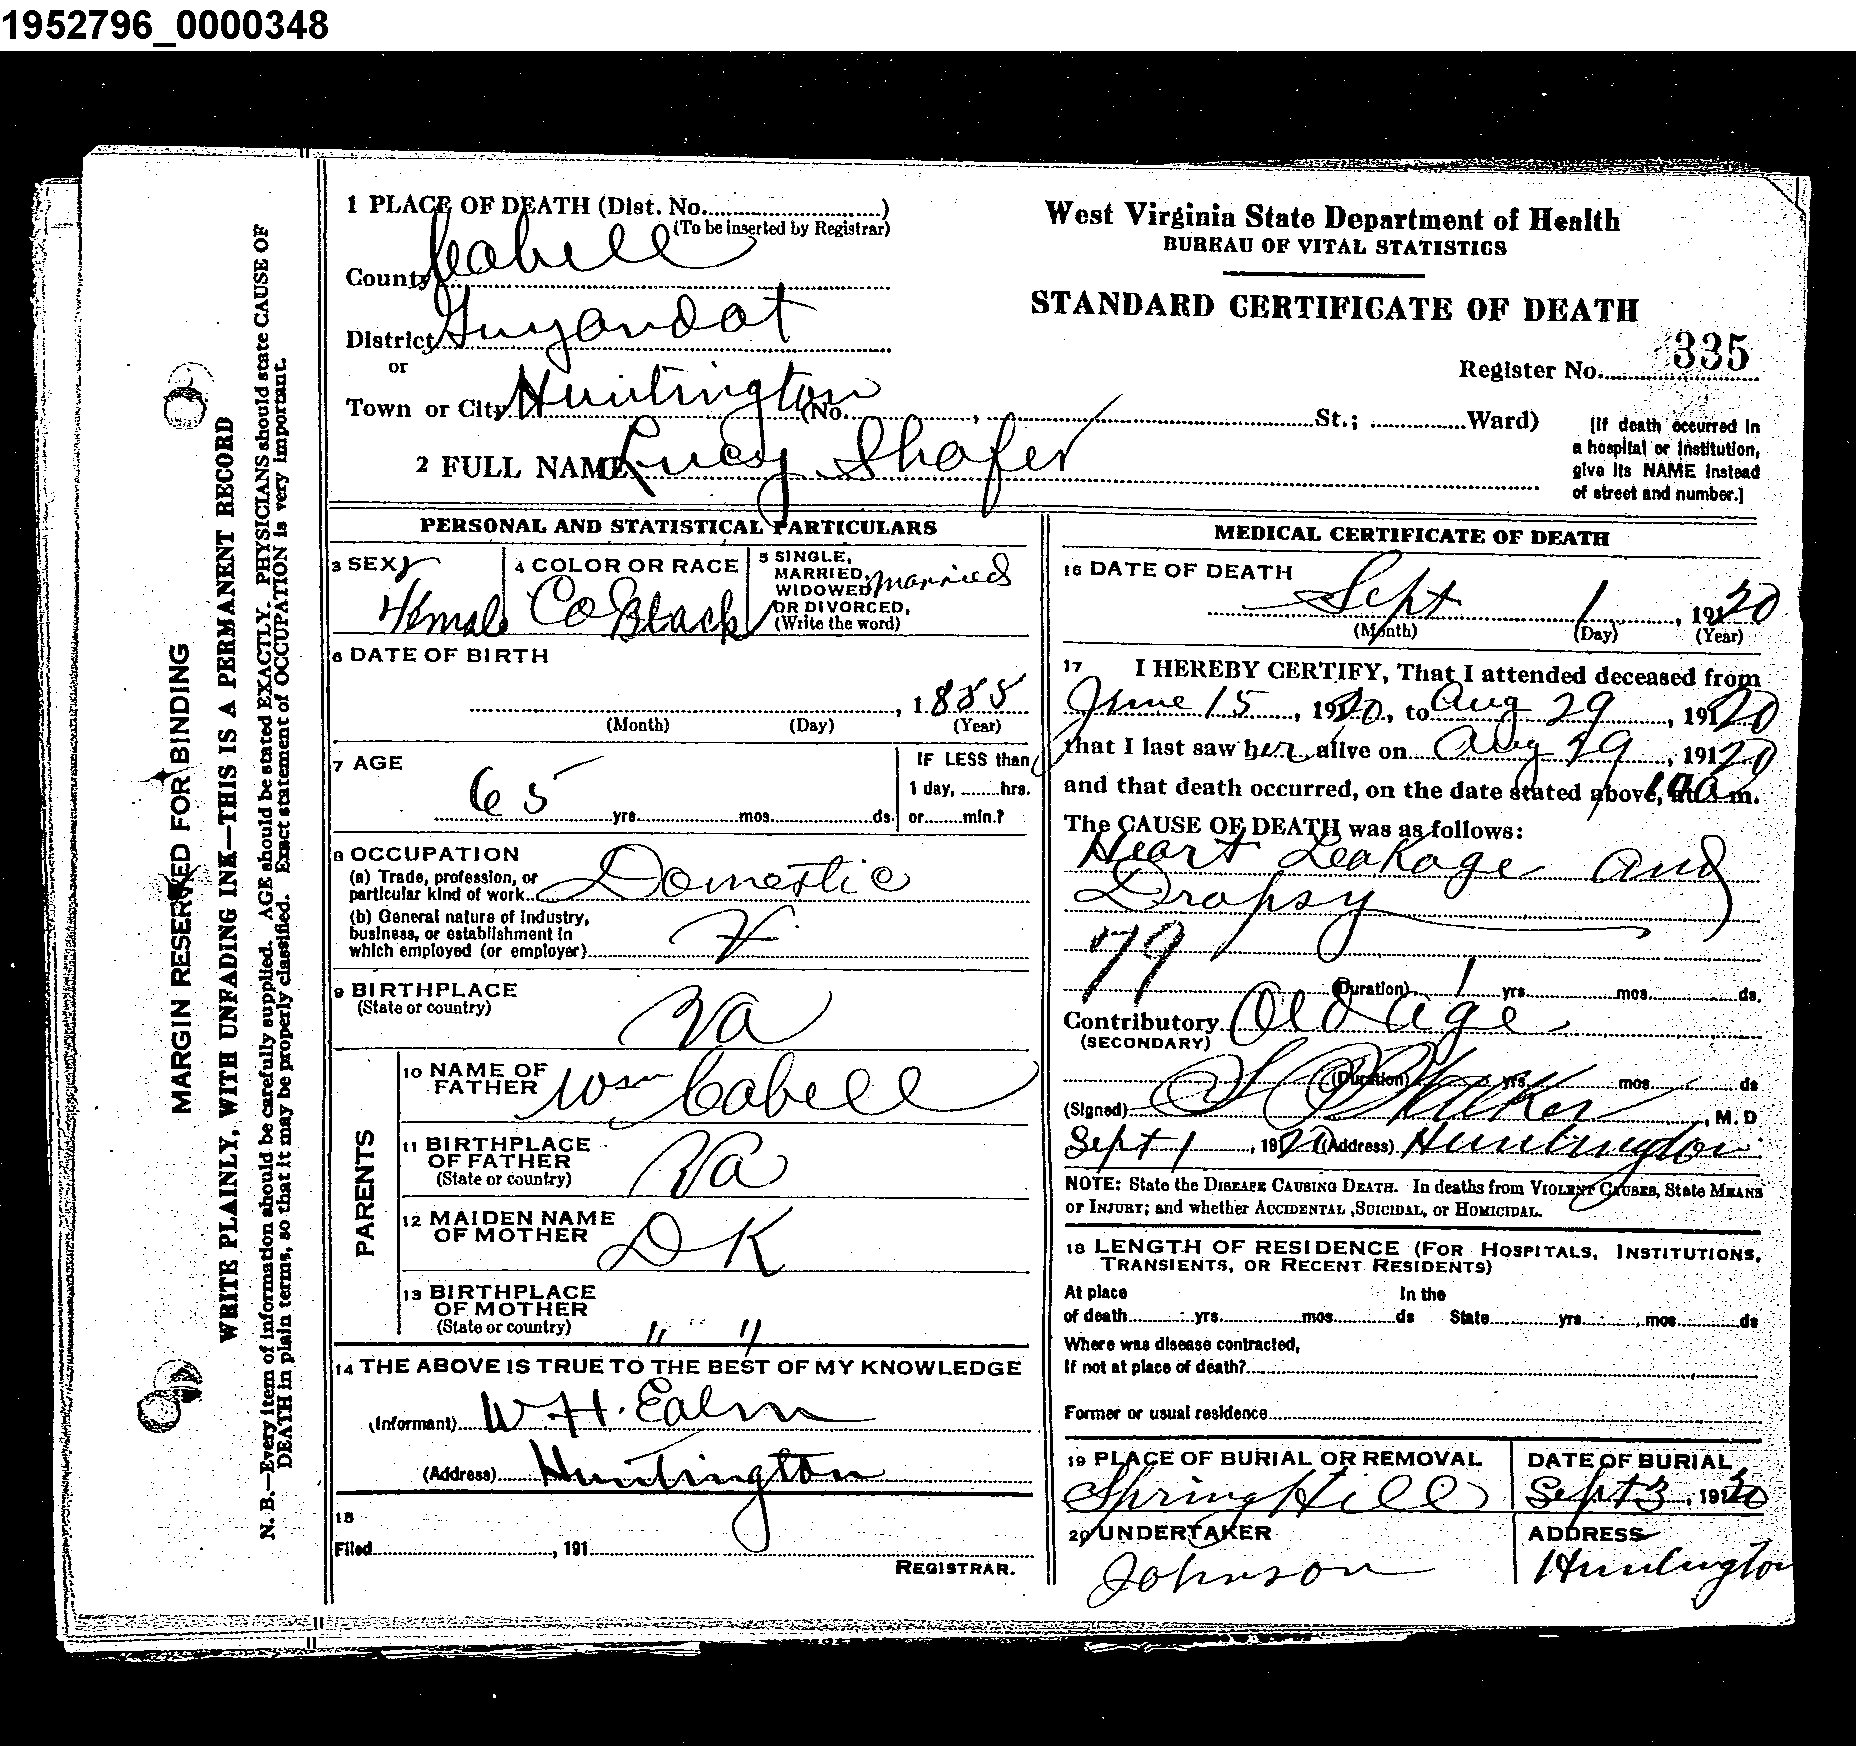 1952796_0000348
1 PLACE OF DEATH (Dist. No. )
(To be inserted by Registrar)
County Cabell
District Guyandot
or
Town or City Huntington (No. , St.; Ward)
2 FULL NAME Lucy Shafer
West Virginia State Department of Health
BUREAU OF VITAL STATISTICS
STANDARD CERTIFICATE OF DEATH
Register No. 335
[If death occurred in
a hospital or institution,
give its NAME instead
of street and number.]
MARGIN RESERVED FOR BINDING
WRITE PLAINLY, WITH UNFADING INK—THIS IS A PERMANENT RECORD
N. B.—Every item of information should be carefully supplied. AGE should be stated EXACTLY. PHYSICIANS should state CAUSE OF
DEATH in plain terms, so that it may be properly classified. Exact statement of OCCUPATION is very important.
PERSONAL AND STATISTICAL PARTICULARS
3 SEX Female
4 COLOR OR RACE Co Black
5 SINGLE,
MARRIED,
WIDOWED married
OR DIVORCED,
(Write the word)
6 DATE OF BIRTH
, 1885
(Month) (Day) (Year)
7 AGE
65 yrs. mos. ds.
IF LESS than
1 day, hrs.
or min.?
8 OCCUPATION
(a) Trade, profession, or
particular kind of work Domestic
(b) General nature of Industry,
business, or establishment in
which employed (or employer)
9 BIRTHPLACE
(State or country) Va
PARENTS
10 NAME OF
FATHER Wm Cabell
11 BIRTHPLACE
OF FATHER
(State or country) Va
12 MAIDEN NAME
OF MOTHER D K
13 BIRTHPLACE
OF MOTHER
(State or country) " "
14 THE ABOVE IS TRUE TO THE BEST OF MY KNOWLEDGE
(Informant) W. H. Ealm
(Address) Huntington
15
Filed , 191
REGISTRAR.
MEDICAL CERTIFICATE OF DEATH
16 DATE OF DEATH
Sept 1 , 1920
(Month) (Day) (Year)
17 I HEREBY CERTIFY, That I attended deceased from
June 15 , 1920, to Aug 29 , 1920
that I last saw her alive on Aug 29 , 1920
and that death occurred, on the date stated above, at m.
The CAUSE OF DEATH was as follows:
Heart Leakage and
Dropsy
79
(Duration) 1 yrs. mos. ds.
Contributory Old Age
(SECONDARY)
(Duration) yrs. mos. ds
(Signed) , M. D
Sept 1 , 1920 (Address) Huntington
NOTE: State the DISEASE CAUSING DEATH. In deaths from VIOLENT CAUSES, State MEANS
or INJURY; and whether ACCIDENTAL ,SUICIDAL, or HOMICIDAL.
18 LENGTH OF RESIDENCE (FOR HOSPITALS, INSTITUTIONS,
TRANSIENTS, OR RECENT RESIDENTS)
At place In the
of death yrs. mos. ds State yrs. mos. ds
Where was disease contracted,
If not at place of death?
Former or usual residence
19 PLACE OF BURIAL OR REMOVAL
Spring Hill
DATE OF BURIAL
Sept 3 , 1920
20 UNDERTAKER
Johnson
ADDRESS
Huntington